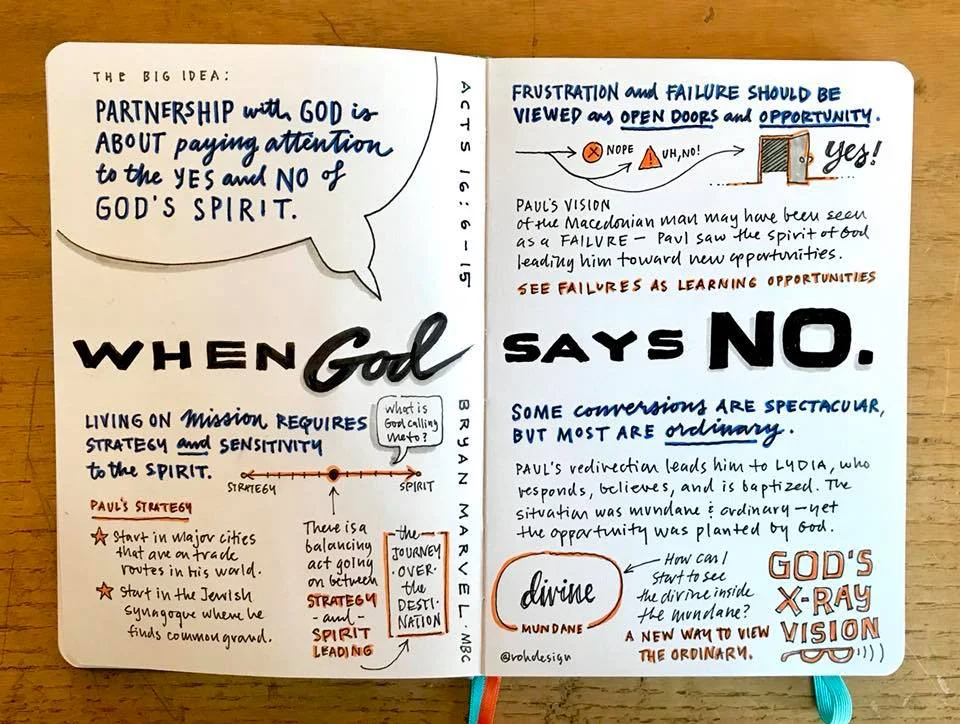 THE BIG IDEA:
PARTNERSHIP with GOD is
ABOUT paying attention
to the YES and NO of
GOD'S SPIRIT.
ACTS 16:6-15
WHEN God
LIVING ON mission REQUIRES
STRATEGY and SENSITIVITY
to the SPIRIT.
what is
God calling
me to?
STRATEGY
SPIRIT
PAUL'S STRATEGY
Start in major cities
that are on trade
routes in his world.
Start in the Jewish
synagogue where he
finds common ground.
There is a
balancing
act going
on between
STRATEGY
- and -
SPIRIT
LEADING
the
JOURNEY
·OVER·
the
DESTI-
NATION
BRYAN MARVEL · MBC
FRUSTRATION and FAILURE SHOULD BE
VIEWED as OPEN DOORS and OPPORTUNITY.
NOPE
UH, NO!
yes!
PAUL'S VISION
of the Macedonian man may have been seen
as a FAILURE — Paul saw the spirit of God
leading him toward new opportunities.
SEE FAILURES AS LEARNING OPPORTUNITIES
SAYS NO.
SOME conversions ARE SPECTACULAR,
BUT MOST ARE ordinary.
PAUL'S redirection leads him to LYDIA, who
responds, believes, and is baptized. The
situation was mundane & ordinary — yet
the opportunity was planted by God.
divine
MUNDANE
How can I
start to see
the divine inside
the mundane?
A NEW WAY TO VIEW
THE ORDINARY.
GOD'S
X-RAY
VISION
@rohdesign